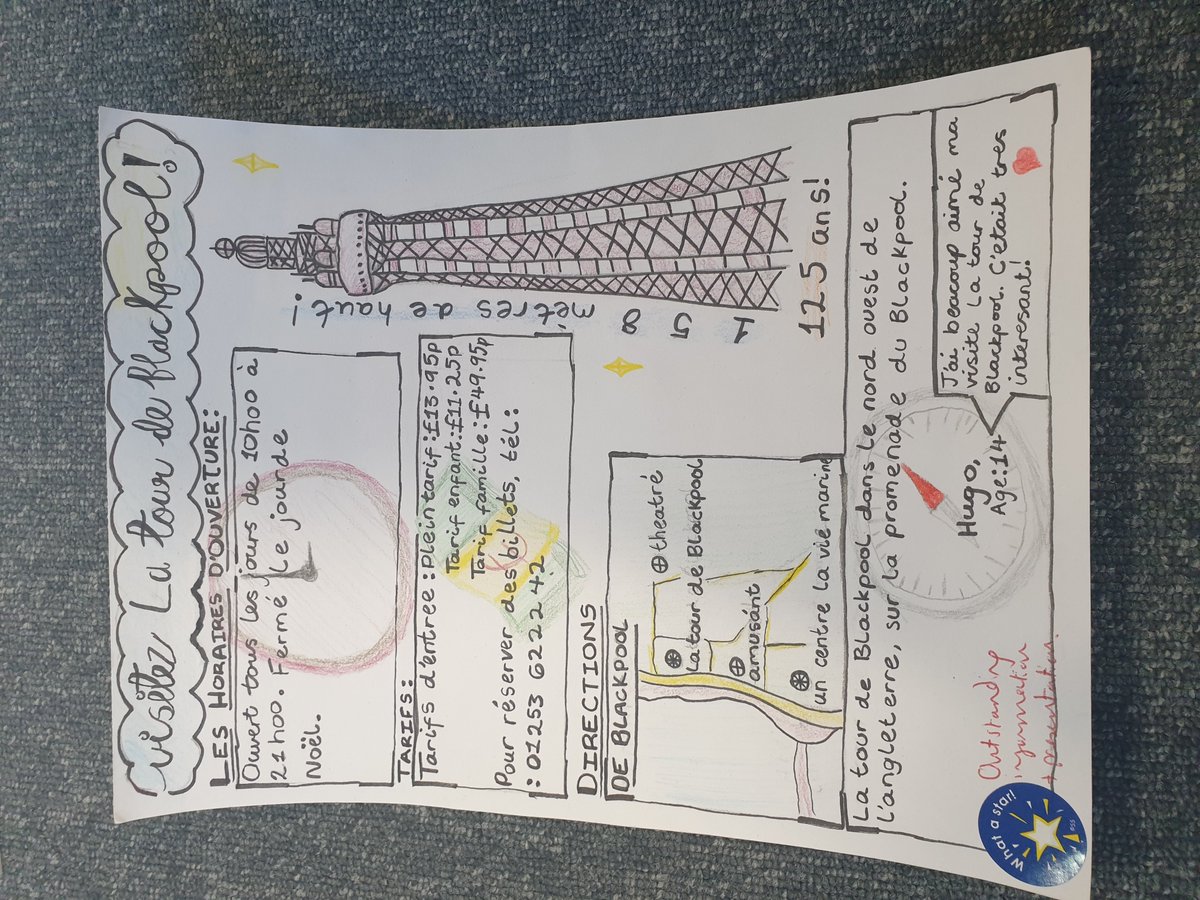 visitez La tour de blackpool!
LES HORAIRES D'OUVERTURE:
Ouvert tous les jours de 10h00 à
21h00. Fermé le jour de
Noël.
TARIFS:
Tarifs d'entree: Plein tarif: £13.95p
Tarif enfant: £11.25p
Tarif famille: £49.95p
Pour réserver des billets, tél:
: 01253 6222 42
158 mètres de haut!
125 ans!
DIRECTIONS
DE BLACKPOOL
theatré
La tour de Blackpool
amusánt
un centre la vié marine
La tour de Blackpool dans le nord ouest de
l'angleterre, sur la promenade du Blackpool.
J'ai beaucoup aimé ma
visite La tour de
Blackpool. C'etait tres
interesant!
Hugo,
Age:14
Outstanding
information
+ presentation.
What a star!